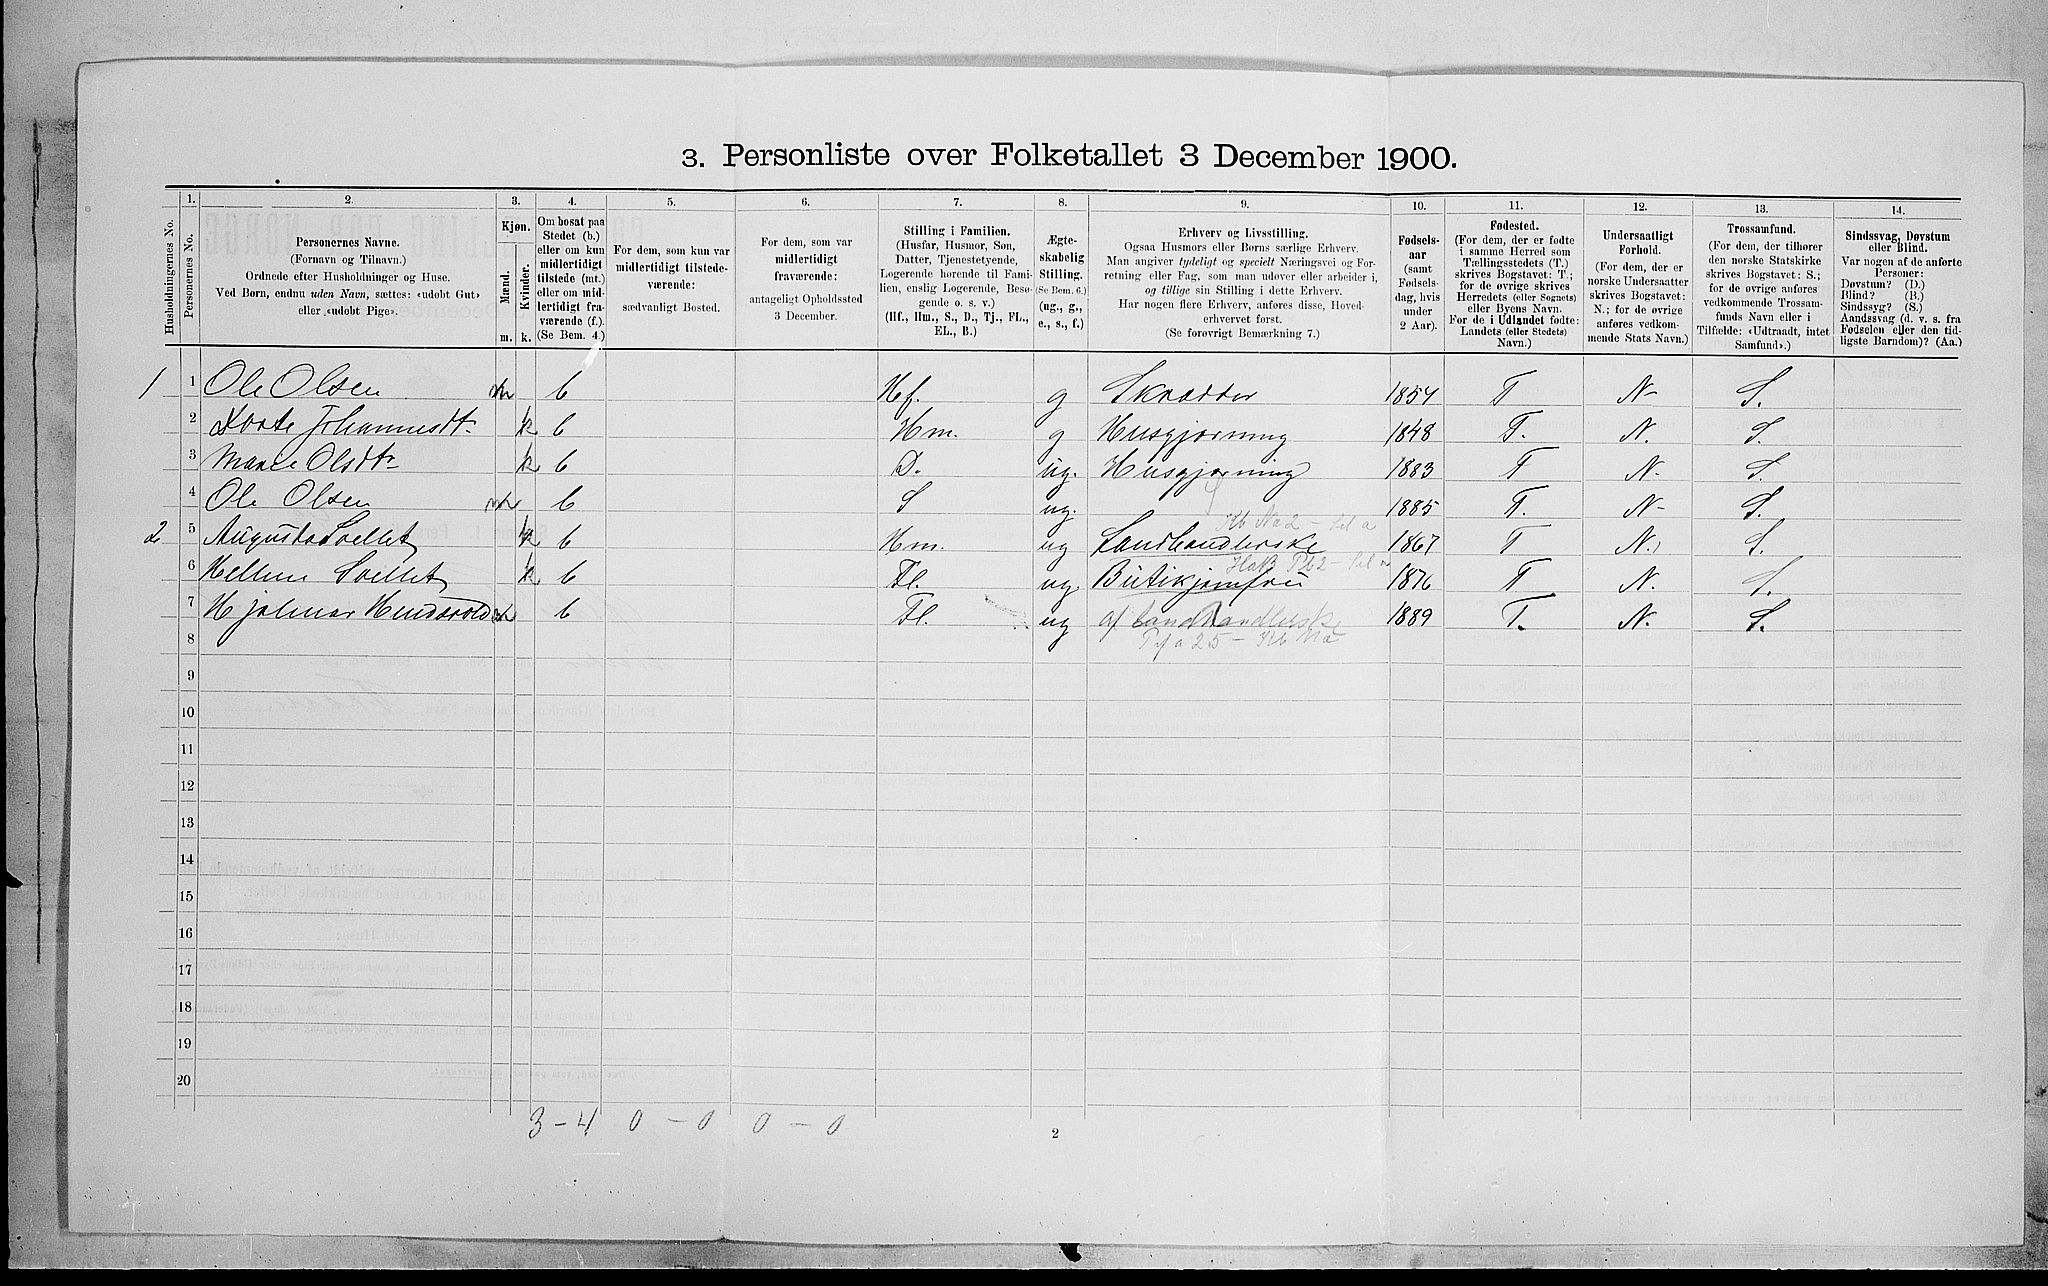 3. Personliste over Folketallet 3 December 1900.
1. 2. 3. 4. 5. 6. 7. 8. 9. 10. 11. 12. 13. 14.
Husholdningernes No.
Personernes No.
Personernes Navne.
(Fornavn og Tilnavn.)
Ordnede efter Husholdninger og Huse.
Ved Børn, endnu uden Navn, sættes: «udobt Gut»
eller «udobt Pige».
Kjøn.
Mænd.
Kvinder.
m. k.
Om bosat paa
Stedet (b.)
eller om kun
midlertidigt
tilstede (mt.)
eller om mid-
lertidigt fra-
værende (f.)
(Se Bem. 4.)
For dem, som kun var
midlertidigt tilstede-
værende:
sædvanligt Bosted.
For dem, som var
midlertidigt
fraværende:
antageligt Opholdssted
3 December.
Stilling i Familien.
(Husfar, Husmor, Søn,
Datter, Tjenestetyende,
Logerende hørende til Fami-
lien, enslig Logerende, Besø-
gende o. s. v.)
(Hf., Hm., S., D., Tj., FL.,
EL., B.)
Ægte-
skabelig
Stilling.
(Se Bem. 6.)
(ug., g.,
e., s., f.)
Erhverv og Livsstilling.
Ogsaa Husmors eller Børns særlige Erhverv.
Man angiver tydeligt og specielt Næringsvei og For-
retning eller Fag, som man udøver eller arbeider i,
og tillige sin Stilling i dette Erhverv.
Har nogen flere Erhverv, anføres disse, Hoved-
erhvervet først.
(Se forøvrigt Bemærkning 7.)
Fødsels-
aar
(samt
Fødsels-
dag, hvis
under
2 Aar).
Fødested.
(For dem, der er fødte
i samme Herred som
Tællingsstedets (T.)
skrives Bogstavet: T.;
for de øvrige skrives
Herredets (eller Sognets)
eller Byens Navn.
For de i Udlandet fødte:
Landets (eller Stedets)
Navn.)
Undersaatligt
Forhold.
(For dem, der er
norske Undersaatter
skrives Bogstavet:
N.; for de øvrige
anføres vedkom-
mende Stats Navn.)
Trossamfund.
(For dem, der tilhører
den norske Statskirke
skrives Bogstavet: S.;
for de øvrige anføres
vedkommende Trossam-
funds Navn eller i
Tilfælde: «Udtraadt, intet
Samfund».)
Sindssvag, Døvstum
eller Blind.
Var nogen af de anførte
Personer:
Døvstum? (D.)
Blind? (B.)
Sindssyg? (S.)
Aandssvag (d. v. s. fra
Fødselen eller den tid-
ligste Barndom)? (Aa.)
1 1 Ole Olsen m b Hf. g Skrædder 1854 T N S.
2 Dorte Johannesdt. k b Hm. g Husgjerning 1848 T. N. S.
3 Maren Olsdtr k b D. ug. Husgjerning 1883 T N. S.
4 Ole Olsen m b S ug. 1885 T. N S.
Kb No 2 - til a
2 5 Augusta Soellet k b Hm. ug Landhandlerske 1867 T N. S.
HaB Pb2 - til a
6 Hellene Soellet k b Fl. ug. Butikjomfru 1876 T N. S.
7 Hjalmar m b Fl. ug af Landhandlersk 1889 T. N. S.
8
9
10
11
12
13
14
15
16
17
18
19
20
3 - 4 0 - 0 0 - 0
2